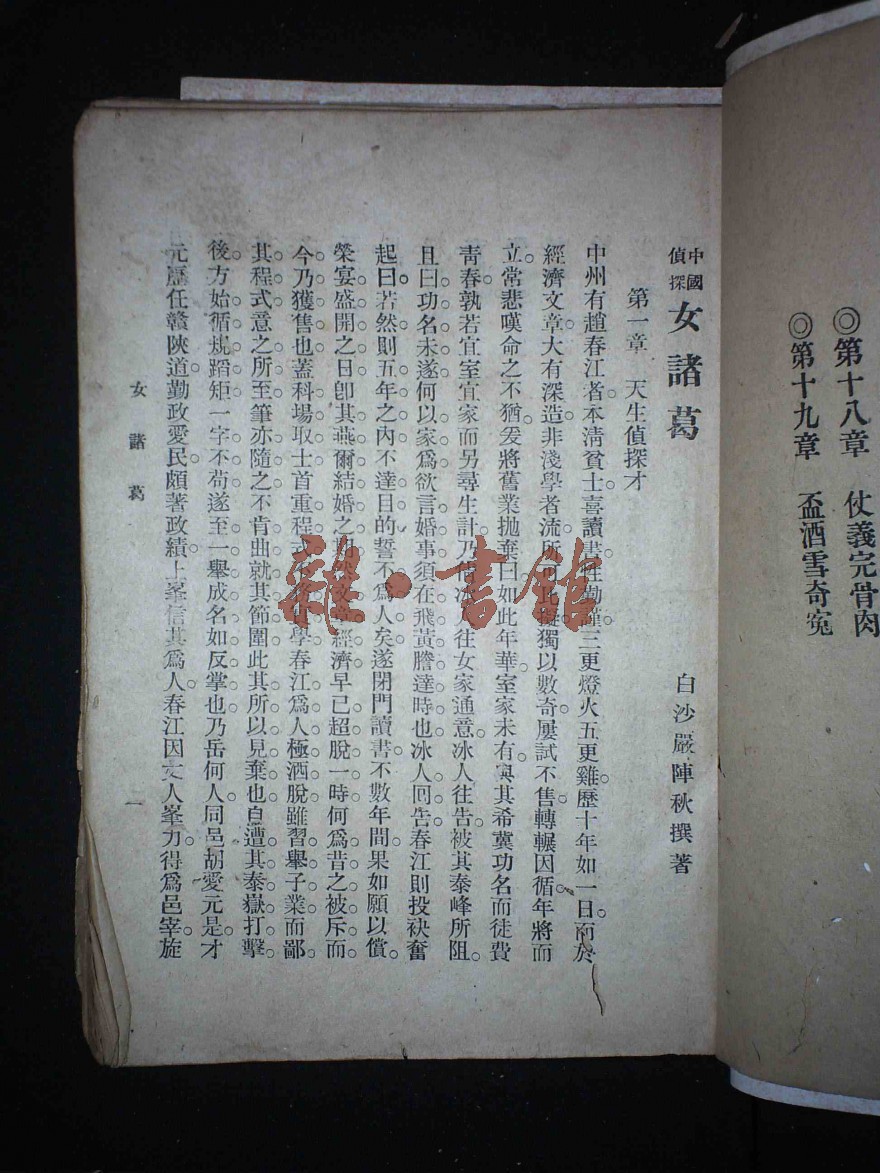 ◎第十八章　仗義完骨肉
◎第十九章　盃酒雪奇寃
中國偵探　女諸葛
白沙嚴陣秋撰著
第一章　天生偵探才
中州有趙春江者。本淸貧士。喜讀書。性勤謹。三更燈火五更雞。歷十年如一日。而於
經濟文章。大有深造。非淺學者流所可比擬。獨以數奇。屢試不售。轉輾因循。年將而
立。常悲嘆命之不猶。爰將舊業拋棄。曰如此年華。室家未有。與其希冀功名而徒費
靑春。孰若宜室宜家而另尋生計。乃倩冰人往女家通意。冰人往告。被其泰峰所阻。
且曰功名未遂。何以家爲。欲言婚事。須在飛黃騰達時也。冰人囘告春江。則投袂奮
起曰。若然。則五年之內。不達目的。誓不爲人矣。遂閉門讀書。不數年間。果如願以償。
榮宴盛開之日。卽其燕爾結婚之期。然文章經濟。早已超脫一時。何爲昔之被斥。而
今乃獲售也。蓋科場取士。首重程式。不　實學。春江爲人極洒脫。雖習舉子業。而鄙
其程式。意之所至。筆亦隨之。不肯曲就其節圍。此其所以見棄也。自遭其泰嶽打擊。
後方始循規蹈矩。一字不苟。遂至一舉成名。如反掌也。乃岳何人。同邑胡愛元是。才
元歷任贛陝道。勤政愛民。頗著政績。上峯信其爲人。春江因丈人峯力。得爲邑宰。旋
女諸葛
一
雜·書館